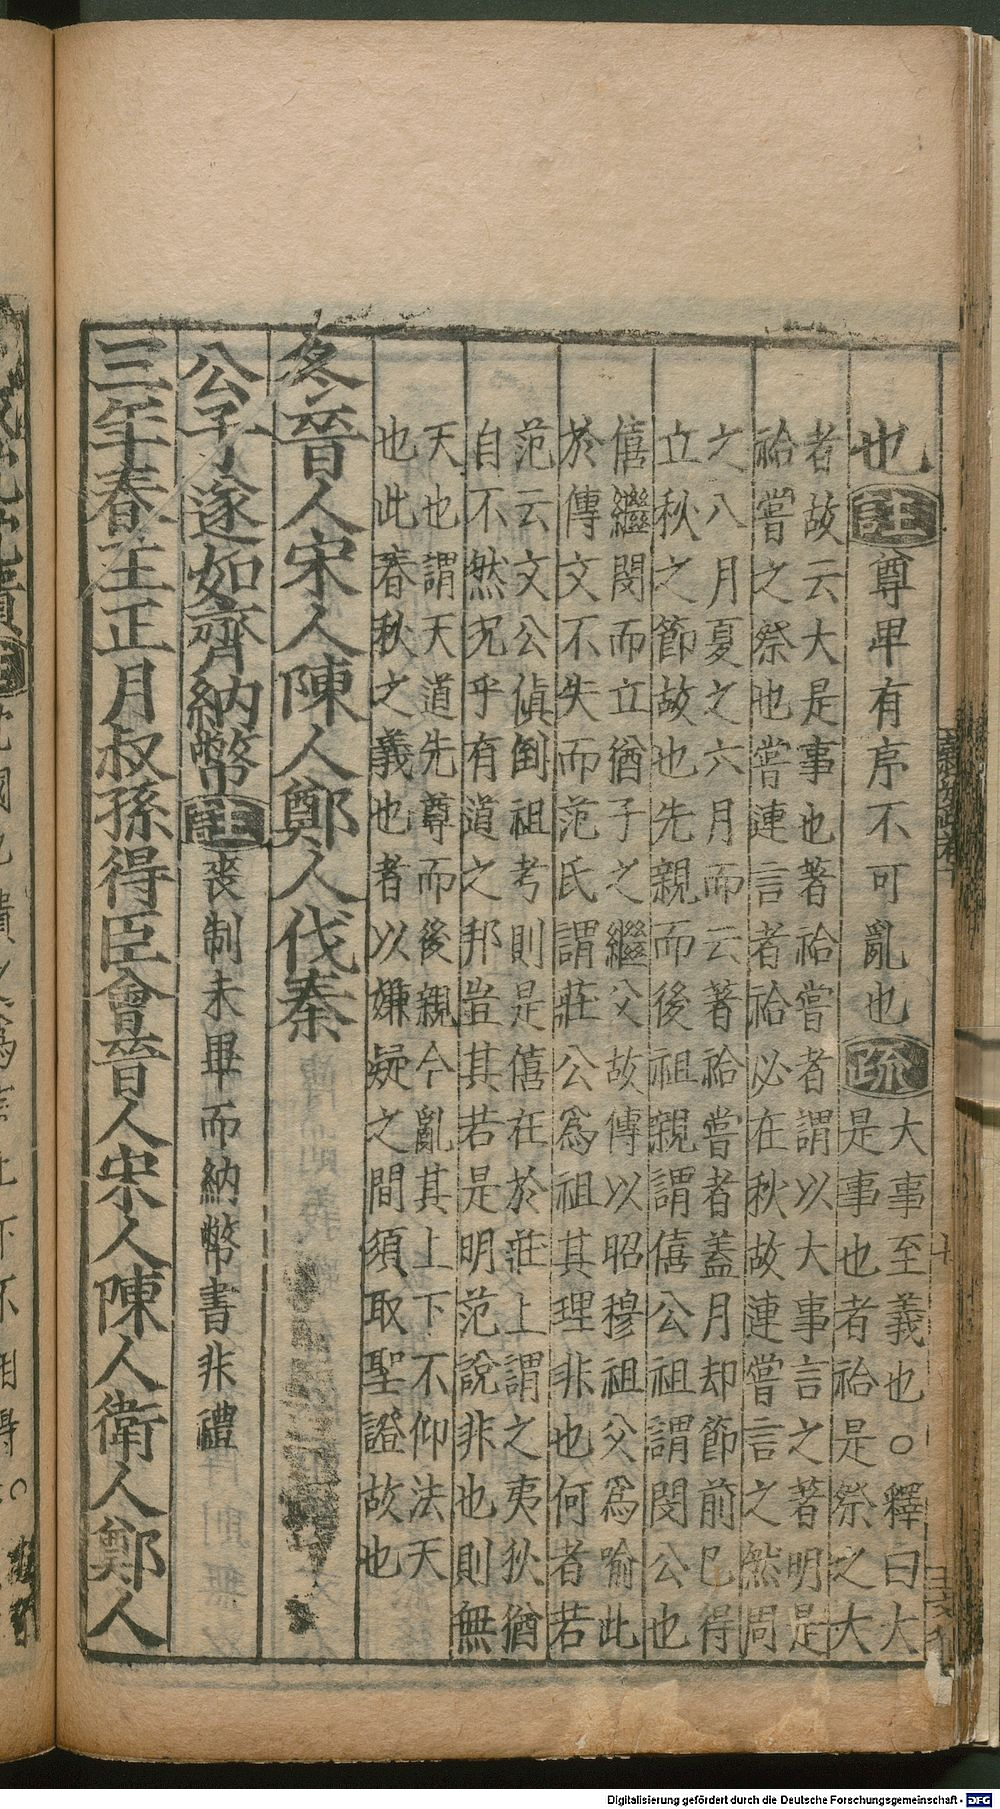 也註尊卑有序不可亂也疏大事至義也○釋曰大
是事也者祫是祭之大
者故云大是事也著祫嘗者謂以大事言之著明是
祫嘗之祭也嘗連言者祫必在秋故連嘗言之然周
之八月夏之六月而云著祫嘗者蓋月却節前已得
立秋之節故也先親而後祖親謂僖公祖謂閔公也
僖繼閔而立猶子之繼父故傳以昭穆祖父爲喻此
於傳文不失而范氏謂莊公爲祖其理非也何者若
范云文公傎倒祖考則是僖在於莊上謂之夷狄猶
自不然況乎有道之邦豈其若是明范說非也則無
天也謂天道先尊而後親今亂其上下不仰法天
也此春秋之義也者以嫌疑之間須取聖證故也
冬晉人宋人陳人鄭人伐秦
公子遂如齊納幣註喪制未畢而納幣書非禮
三年春王正月叔孫得臣會晉人宋人陳人衛人鄭人
Digitalisierung gefördert durch die Deutsche Forschungsgemeinschaft - DFG